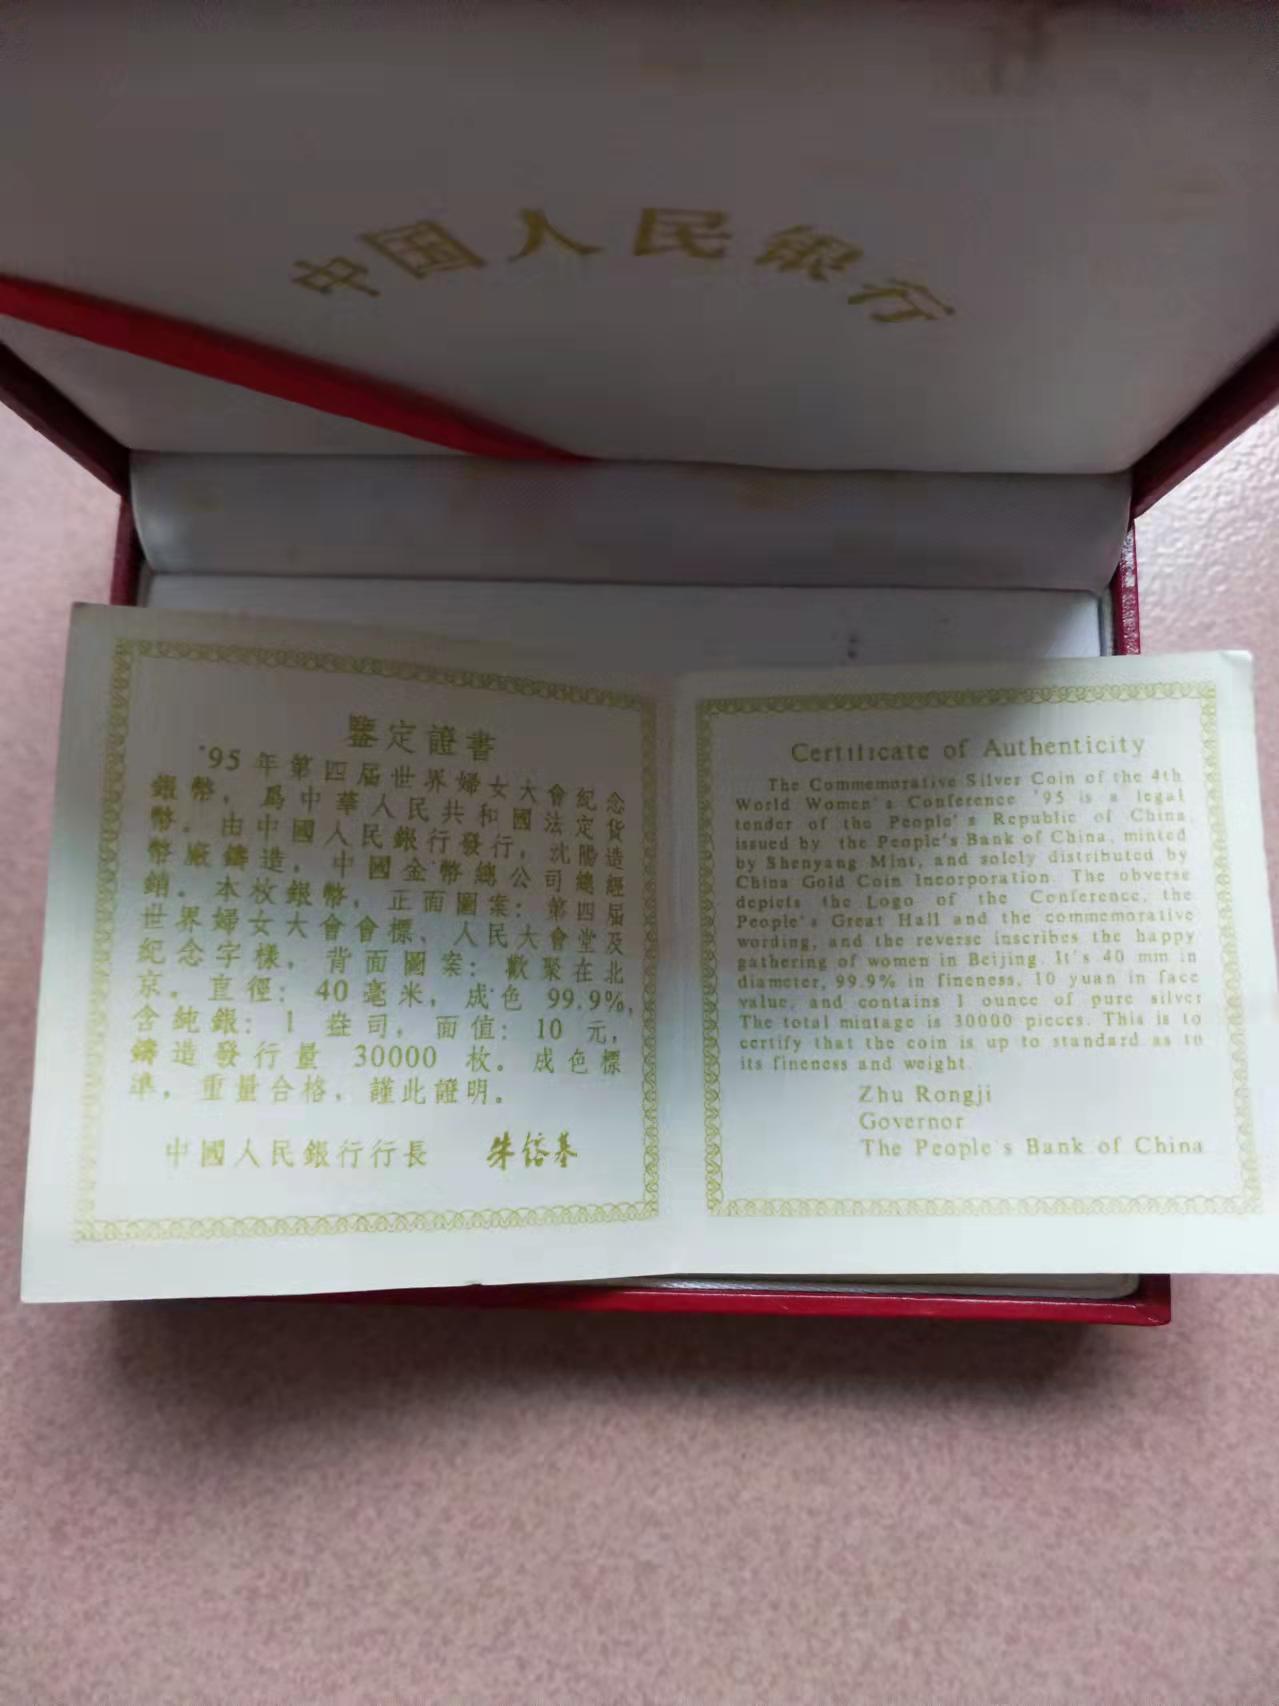 中国人民银行
鑒定證書
'95年第四届世界婦女大會紀念
銀幣，爲中華人民共和國法定貨
幣。由中國人民銀行發行，沈陽造
幣廠鑄造，中國金幣總公司總經
銷。本枚銀幣，正面圖案：第四届
世界婦女大會會標、人民大會堂及
紀念字樣，背面圖案：歡聚在北
京。直徑：40毫米，成色 99.9%，
含純銀：1 盎司，面值：10 元，
鑄造發行量 30000 枚。成色標
準，重量合格，謹此證明。
中國人民銀行行長 朱镕基
Certificate of Authenticity
The Commemorative Silver Coin of the 4th
World Women's Conference '95 is a legal
tender of the People's Republic of China,
issued by the People's Bank of China, minted
by Shenyang Mint, and solely distributed by
China Gold Coin Incorporation. The obverse
depicts the Logo of the Conference, the
People's Great Hall and the commemorative
wording, and the reverse inscribes the happy
gathering of women in Beijing. It's 40 mm in
diameter, 99.9% in fineness, 10 yuan in face
value, and contains 1 ounce of pure silver
The total mintage is 30000 pieces. This is to
certify that the coin is up to standard as to
its fineness and weight.
Zhu Rongji
Governor
The People's Bank of China